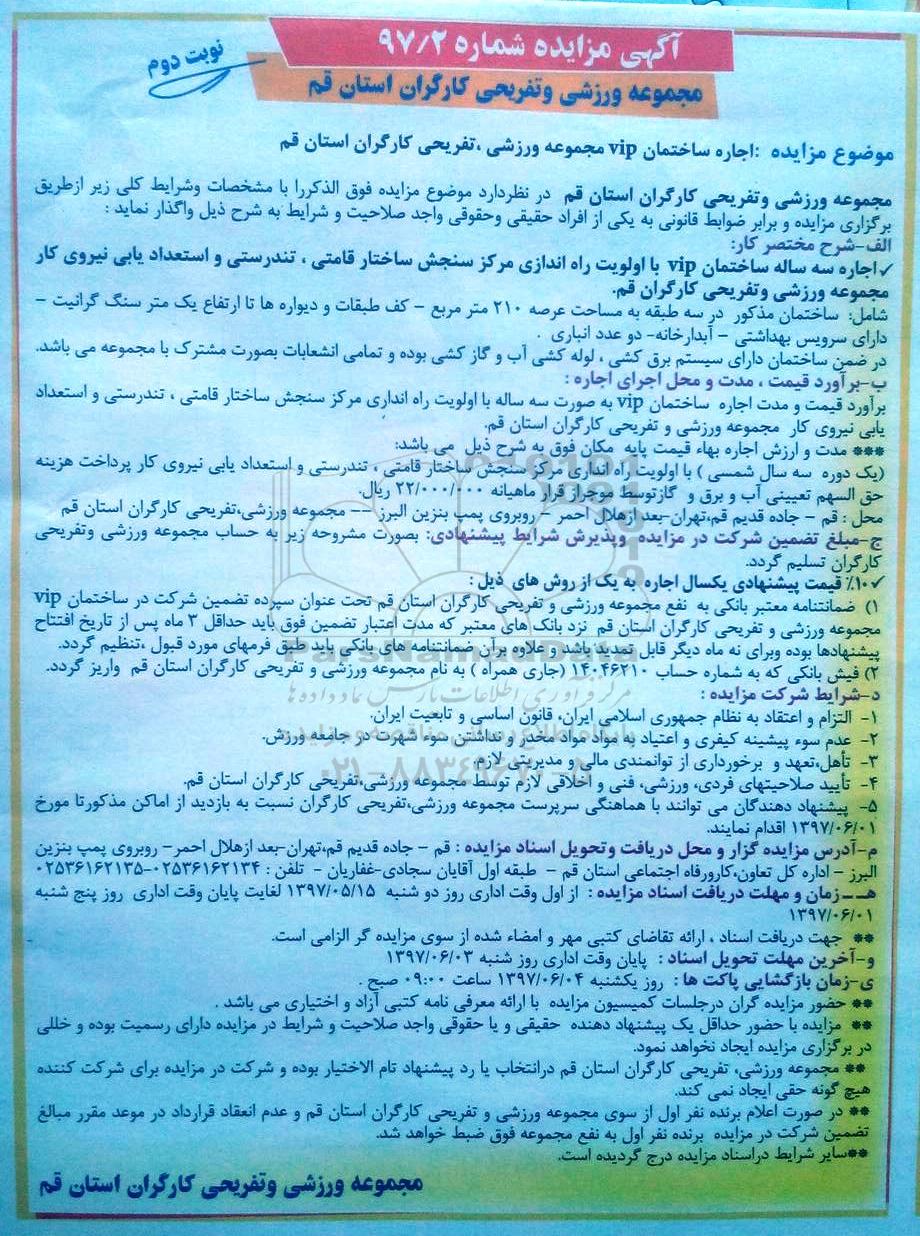 آگهی مزایده شماره ۹۷/۲
نوبت دوم
مجموعه ورزشی وتفریحی کارگران استان قم
موضوع مزایده :اجاره ساختمان vip مجموعه ورزشی ،تفریحی کارگران استان قم
مجموعه ورزشی وتفریحی کارگران استان قم در نظردارد موضوع مزایده فوق الذکررا با مشخصات وشرایط کلی زیر ازطریق
برگزاری مزایده و برابر ضوابط قانونی به یکی از افراد حقیقی وحقوقی واجد صلاحیت و شرایط به شرح ذیل واگذار نماید :
الف-شرح مختصر کار:
✓اجاره سه ساله ساختمان vip با اولویت راه اندازی مرکز سنجش ساختار قامتی ، تندرستی و استعداد یابی نیروی کار
مجموعه ورزشی وتفریحی کارگران قم.
شامل: ساختمان مذکور در سه طبقه به مساحت عرصه ۲۱۰ متر مربع – کف طبقات و دیواره ها تا ارتفاع یک متر سنگ گرانیت –
دارای سرویس بهداشتی – آبدارخانه- دو عدد انباری .
در ضمن ساختمان دارای سیستم برق کشی ، لوله کشی آب و گاز کشی بوده و تمامی انشعابات بصورت مشترک با مجموعه می باشد.
ب-برآورد قیمت ، مدت و محل اجرای اجاره :
برآورد قیمت و مدت اجاره ساختمان vip به صورت سه ساله با اولویت راه اندازی مرکز سنجش ساختار قامتی ، تندرستی و استعداد
یابی نیروی کار مجموعه ورزشی و تفریحی کارگران استان قم.
*** مدت و ارزش اجاره بهاء قیمت پایه مکان فوق به شرح ذیل می باشد:
(یک دوره سه سال شمسی ) با اولویت راه اندازی مرکز سنجش ساختار قامتی ، تندرستی و استعداد یابی نیروی کار پرداخت هزینه
حق السهم تعیینی آب و برق و گازتوسط موجراز قرار ماهیانه ۲۲/۰۰۰/۰۰۰ ریال.
محل : قم – جاده قدیم قم،تهران-بعد ازهلال احمر – روبروی پمپ بنزین البرز –– مجموعه ورزشی،تفریحی کارگران استان قم
ج-مبلغ تضمین شرکت در مزایده وپذیرش شرایط پیشنهادی: بصورت مشروحه زیر به حساب مجموعه ورزشی وتفریحی
کارگران تسلیم گردد.
✓۱۰٪ قیمت پیشنهادی یکسال اجاره به یک از روش های ذیل :
۱) ضمانتنامه معتبر بانکی به نفع مجموعه ورزشی و تفریحی کارگران استان قم تحت عنوان سپرده تضمین شرکت در ساختمان vip
مجموعه ورزشی و تفریحی کارگران استان قم نزد بانک های معتبر که مدت اعتبار تضمین فوق باید حداقل ۳ ماه پس از تاریخ افتتاح
پیشنهادها بوده وبرای نه ماه دیگر قابل تمدید باشد و علاوه برآن ضمانتنامه های بانکی باید طبق فرمهای مورد قبول ،تنظیم گردد.
۲) فیش بانکی که به شماره حساب ۱۴۰۴۶۲۱۰ (جاری همراه ) به نام مجموعه ورزشی و تفریحی کارگران استان قم واریز گردد.
د-شرایط شرکت مزایده :
۱- التزام و اعتقاد به نظام جمهوری اسلامی ایران، قانون اساسی و تابعیت ایران.
۲- عدم سوء پیشینه کیفری و اعتیاد به مواد مواد مخدر و نداشتن سوء شهرت در جامعه ورزش.
۳- تأهل،تعهد و برخورداری از توانمندی مالی و مدیریتی لازم.
۴- تأیید صلاحیتهای فردی، ورزشی، فنی و اخلاقی لازم توسط مجموعه ورزشی،تفریحی کارگران استان قم.
۵- پیشنهاد دهندگان می توانند با هماهنگی سرپرست مجموعه ورزشی،تفریحی کارگران نسبت به بازدید از اماکن مذکورتا مورخ
۱۳۹۷/۰۶/۰۱ اقدام نمایند.
م-آدرس مزایده گزار و محل دریافت وتحویل اسناد مزایده : قم – جاده قدیم قم،تهران-بعد ازهلال احمر- روبروی پمپ بنزین
البرز – اداره کل تعاون،کارورفاه اجتماعی استان قم – طبقه اول آقایان سجادی-غفاریان - تلفن : ۰۲۵۳۶۱۶۲۱۳۴-۰۲۵۳۶۱۶۲۱۳۵
هـ-زمان و مهلت دریافت اسناد مزایده : از اول وقت اداری روز دو شنبه ۱۳۹۷/۰۵/۱۵ لغایت پایان وقت اداری روز پنج شنبه
۱۳۹۷/۰۶/۰۱
** جهت دریافت اسناد ، ارائه تقاضای کتبی مهر و امضاء شده از سوی مزایده گر الزامی است.
و-آخرین مهلت تحویل اسناد : پایان وقت اداری روز شنبه ۱۳۹۷/۰۶/۰۳
ی-زمان بازگشایی پاکت ها : روز یکشنبه ۱۳۹۷/۰۶/۰۴ ساعت ۰۹:۰۰ صبح .
** حضور مزایده گران درجلسات کمیسیون مزایده با ارائه معرفی نامه کتبی آزاد و اختیاری می باشد .
** مزایده با حضور حداقل یک پیشنهاد دهنده حقیقی و یا حقوقی واجد صلاحیت و شرایط در مزایده دارای رسمیت بوده و خللی
در برگزاری مزایده ایجاد نخواهد نمود.
** مجموعه ورزشی، تفریحی کارگران استان قم درانتخاب یا رد پیشنهاد تام الاختیار بوده و شرکت در مزایده برای شرکت کننده
هیچ گونه حقی ایجاد نمی کند.
** در صورت اعلام برنده نفر اول از سوی مجموعه ورزشی و تفریحی کارگران استان قم و عدم انعقاد قرارداد در موعد مقرر مبالغ
تضمین شرکت در مزایده برنده نفر اول به نفع مجموعه فوق ضبط خواهد شد.
**سایر شرایط دراسناد مزایده درج گردیده است.
مجموعه ورزشی وتفریحی کارگران استان قم